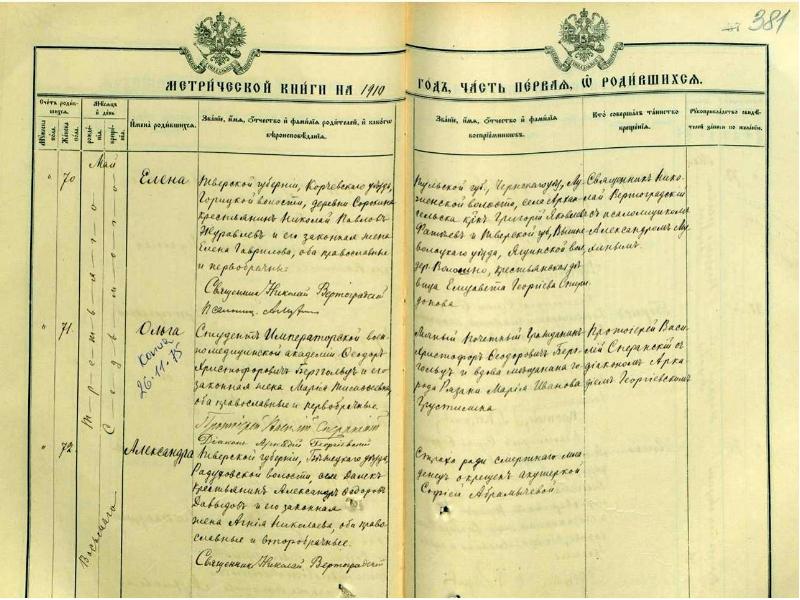 381
МЕТРИЧЕСКОЙ КНИГИ НА 1910 ГОДЪ, ЧАСТЬ ПЕРВАЯ, Ѿ РОДИВШИХСЯ.
Счетъ родившихся.
Мужеска пола.
Женска пола.
Мѣсяцъ и день
рожденія.
крещенія.
Имена родившихся.
Званіе, имя, отчество и фамилія родителей, и какого вѣроисповѣданія.
Званіе, имя, отчество и фамилія воспріемниковъ.
Кто совершалъ таинство крещенія.
Рукоприкладство свидѣтелей записи по желанію.
Май
"
70
Третьяго
Седьмого
Елена
Тверской губерніи, Корчевского уѣзда,
Горицкой волости, деревни Сорокина
крестьянинъ Николай Павловъ
Журавлевъ и его законная жена
Елена Гаврилова, оба православные
и первобрачные.
Священникъ Николай Вертоградскій
Тульской губ, Чернскаго уѣз,
волости, село
Григорій Яковлевъ
и Тверской губ, Вышне-
волоцкаго уѣзда,
дер. крестьянская дѣ-
вица Елизавета Георгіева Спири-
донова
Священникъ Нико-
лай Вертоградскій
съ псаломщикомъ
Александромъ
"
71.
Ольга
26.11.75
Студентъ Императорской воен-
номедицинской академіи Ѳеодоръ
Христофоровичъ Бергольцъ и его
законная жена Марія
оба православные и первобрачные.
Протоіерей Василій Сперанскій
Діаконъ Аркадій Георгіевскій
Личный почетный гражданинъ
Христофоръ Ѳеодоровичъ Бер-
гольцъ и вдова мещанина го-
рода Рязани Марія Иванова
Грустилина
Протоіерей Васи-
лій Сперанскій съ
діакономъ Арка-
діемъ Георгіевскимъ
"
72.
Восьмаго
Александра
Тверской губерніи, Бѣжецкаго уѣзда,
волости, село
крестьянинъ Александръ Ѳедоровъ
Давыдовъ и его законная
жена Агнія Николаева, оба право-
славные и второбрачные.
Священникъ Николай Вертоградскій
Страха ради смертнаго мла-
денецъ окрещенъ акушеркой
Софіей Абрамычевой.